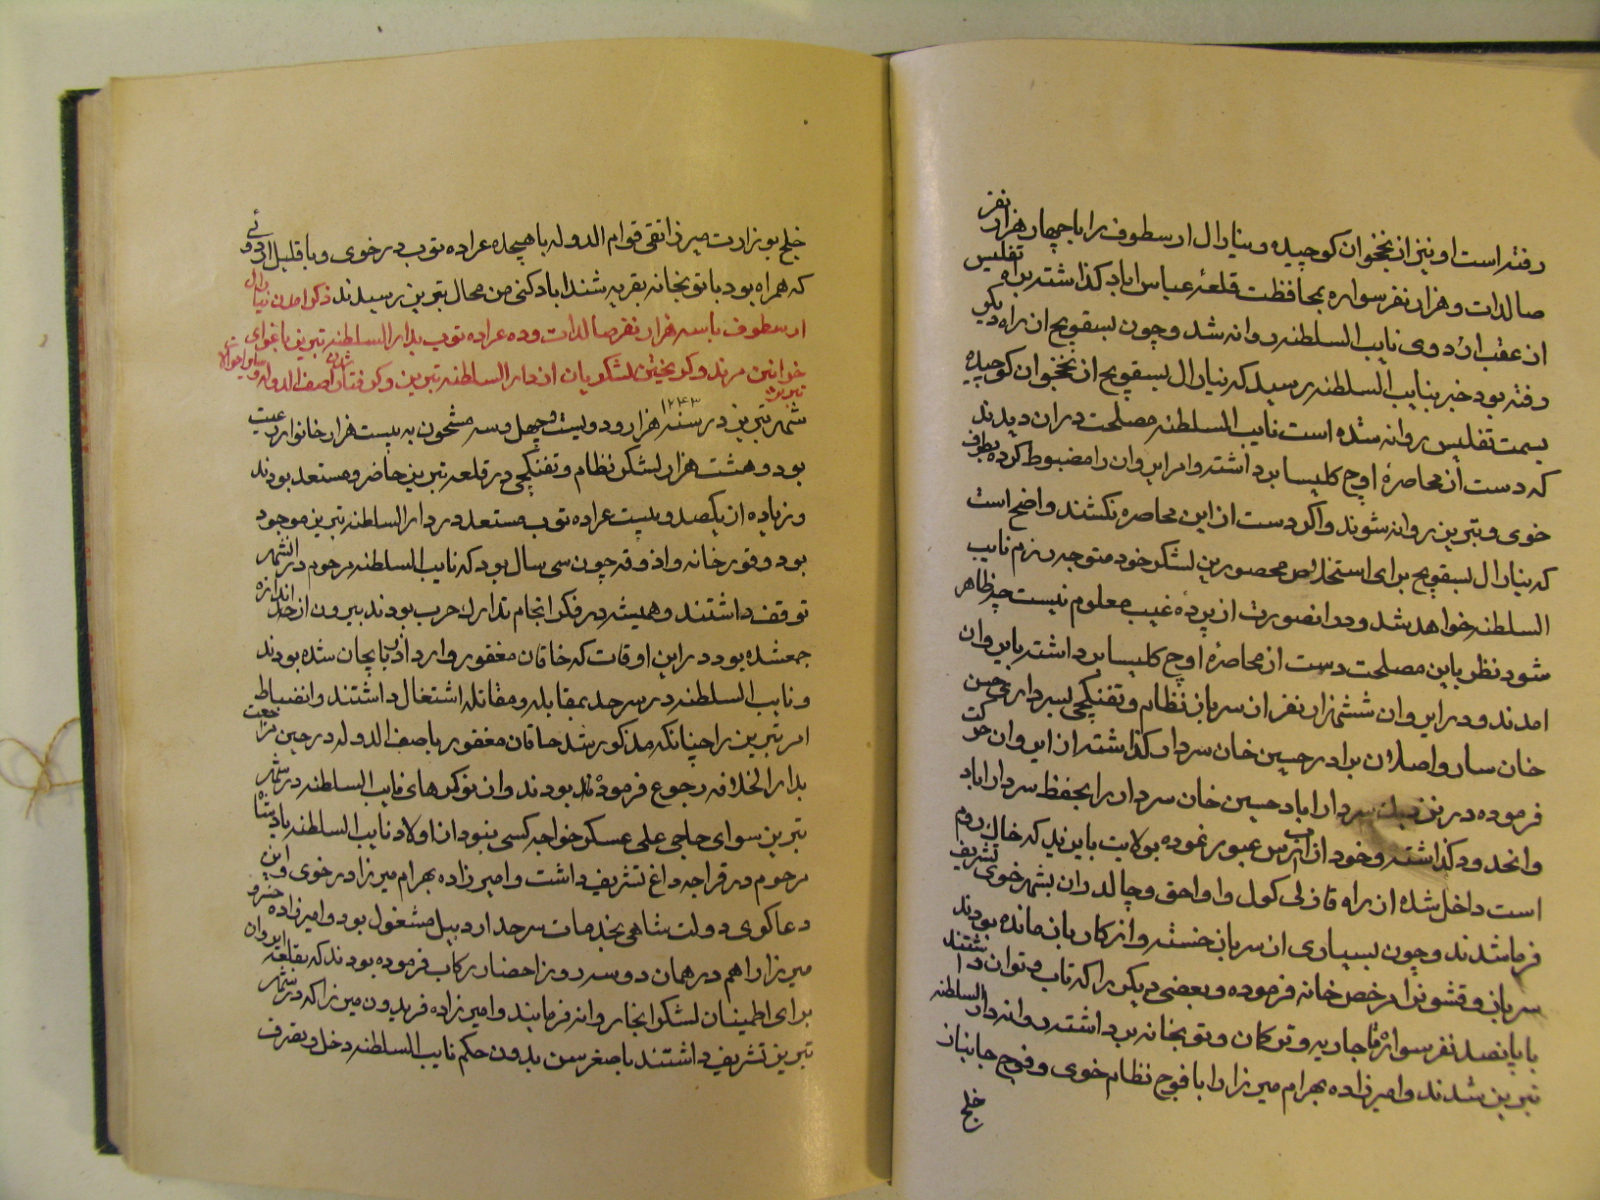 رفته است او نیز از نخجوان کوچیده و ینارال ارسطوف را با چهار هزار نفر
صالدات و هزار نفر سواره بمحافظت قلعهٔ عباس اباد کذاشته براه تفلیس
از عقب اردوی نایب السلطنه روانه شد و چون بسقویچ از راه دیکر
رفته بود خبر بنایب السلطنه رسید که ینارال بسقویچ از نخجوان کوچیده
بسمت تفلیس روانه شده است نایب السلطنه مصلحت دران دیدند
که دست از محاصرهٔ اوچ کلیسا برداشته و امر ایروان را مضبوط کرده بطرف
خوی و تبریز روانه شوند و اکر دست از این محاصره نکشند واضح است
که ینارال بسقویچ برای استخلاص محصورین لشکر خود متوجه رزم نایب
السلطنه خواهد شد و در انصورت از پردهٔ غیب معلوم نیست چه ظاهر
شود نظر باین مصلحت دست از محاصرهٔ اوچ کلیسا برداشته بایروان
امدند و در ایروان ششهزار نفر از سرباز نظام و تفنکچی بسرداری حسن
خان سارو اصلان برادر حسین خان سردار کذاشته از ایروان حرکت
فرموده در نزدیک سردار اباد حسین خان سردار را بحفظ سردار اباد
و انحدود کذاشته و خود از ارس عبور نموده بولایت بایزید که خاک روم
است داخل شده از راه قازلی کول و اواجق و چالدران بشهر خوی تشریف
فرما شدند و چون بسیاری از سرباز خسته و از کار باز مانده بودند
سرباز و قشونرا مرخص خانه فرموده و بعضی دیکر را که تاب و توان داشتند
با پانصد نفر سوارهٔ قاجاریه و ترکمان و توپخانه برداشته روانه دار السلطنه
تبریز شدند و امیرزاده بهرام میرزا را با فوج نظام خوی و فوج جانباز
خلج
خلج بوزارت میرزا تقی قوام الدوله با هیجده عراده توپ در خوی و با قلیل اردوئی
که همراه بود با توپخانه بقریه شنداباد کنی من محال تبریز رسیدند ذکر امدن ینارال
ارسطوف با سه هزار نفر صالدات و ده عراده توپ بدار السلطنه تبریز باغوای
خوانین مرند و کریختن لشکریان از دار السلطنه تبریز و کرفتار شدن اصف الدوله و سایر احوالات
تبریز
۱۲۴۳
شهر تبریز در سنه هزار و دویست و چهل و سه مشحون به بیست هزار خانوار رعیت
بود و هشت هزار لشکر نظام و تفنکچی در قلعه تبریز حاضر و مستعد بودند
و زیاده از یکصد و بیست عراده توپ مستعد در دار السلطنه تبریز موجود
بود و قورخانه و اذوقه چون سی سال بود که نایب السلطنه مرحوم در انشهر
توقف داشتند و همیشه در فکر انجام تدارک حرب بودند بیرون از حد اندازه
جمعشده بود در این اوقات که خاقان مغفور وارد اذربایجان شده بودند
و نایب السلطنه در سرحد بمقابله و مقاتله اشتغال داشتند و انضباط
امر تبریز را چنانکه مذکور شد خاقان مغفور باصف الدوله در حین مراجعت
بدار الخلافه رجوع فرموده بودند و از نوکرهای نایب السلطنه در شهر
تبریز سوای حاجی علی عسکر خواجه کسی نبود از اولاد نایب السلطنه پادشاه
مرحوم در قراجه داغ تشریف داشت و امیرزاده بهرام میرزا در خوی و این
دعاکوی دولت شاهی بخدمات سرحد اردبیل مشغول بود و امیرزاده خسرو
میرزا را هم در همان دو سه روز احضار رکاب فرموده بودند که بقلعه ایروان
برای اطمینان لشکر انجا روانه فرمایند و امیرزاده فریدون میرزا که در شهر
تبریز تشریف داشتند با صغر سن بدون حکم نایب السلطنه دخل و تصرف